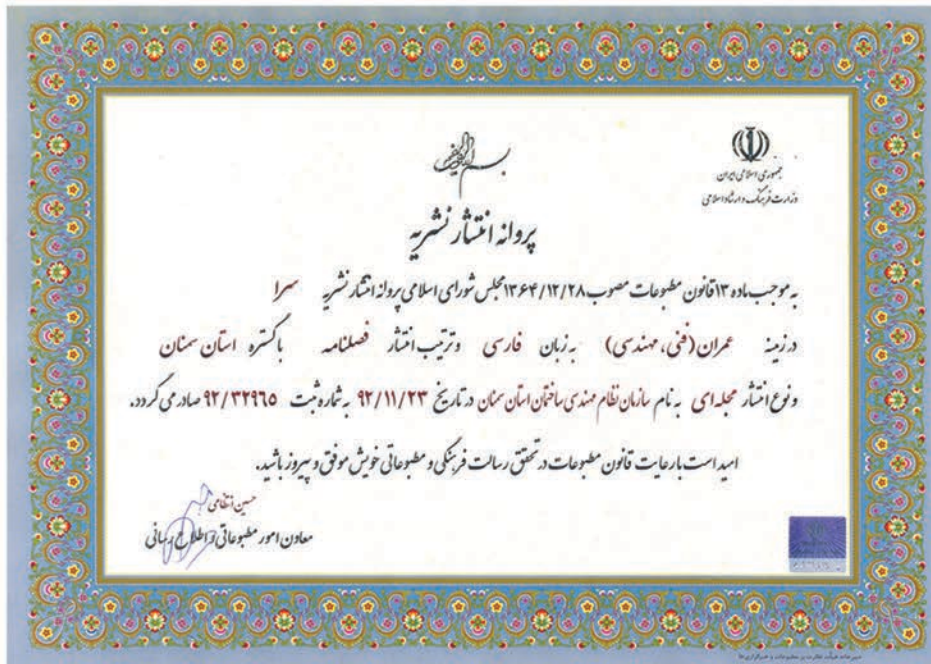 بسم الله الرحمن الرحیم
جمهوری اسلامی ایران
وزارت فرهنگ و ارشاد اسلامی
پروانه انتشار نشریه
به موجب ماده ۱۳ قانون مطبوعات مصوب ۱۳۶۴/۱۲/۲۸ مجلس شورای اسلامی پروانه انتشار نشریه سرا
در زمینه عمران (فنی، مهندسی) به زبان فارسی و ترتیب انتشار فصلنامه با گستره استان سمنان
و نوع انتشار مجله‌ای به نام سازمان نظام مهندسی ساختمان استان سمنان در تاریخ ۹۲/۱۱/۲۳ به شماره ثبت ۹۲/۳۲۹۶۵ صادر می گردد.
امید است با رعایت قانون مطبوعات در تحقق رسالت فرهنگی و مطبوعاتی خویش موفق و پیروز باشید.
حسین انتظامی
معاون امور مطبوعاتی و اطلاع رسانی
دبیرخانه هیأت نظارت بر مطبوعات و خبرگزاری‌ها